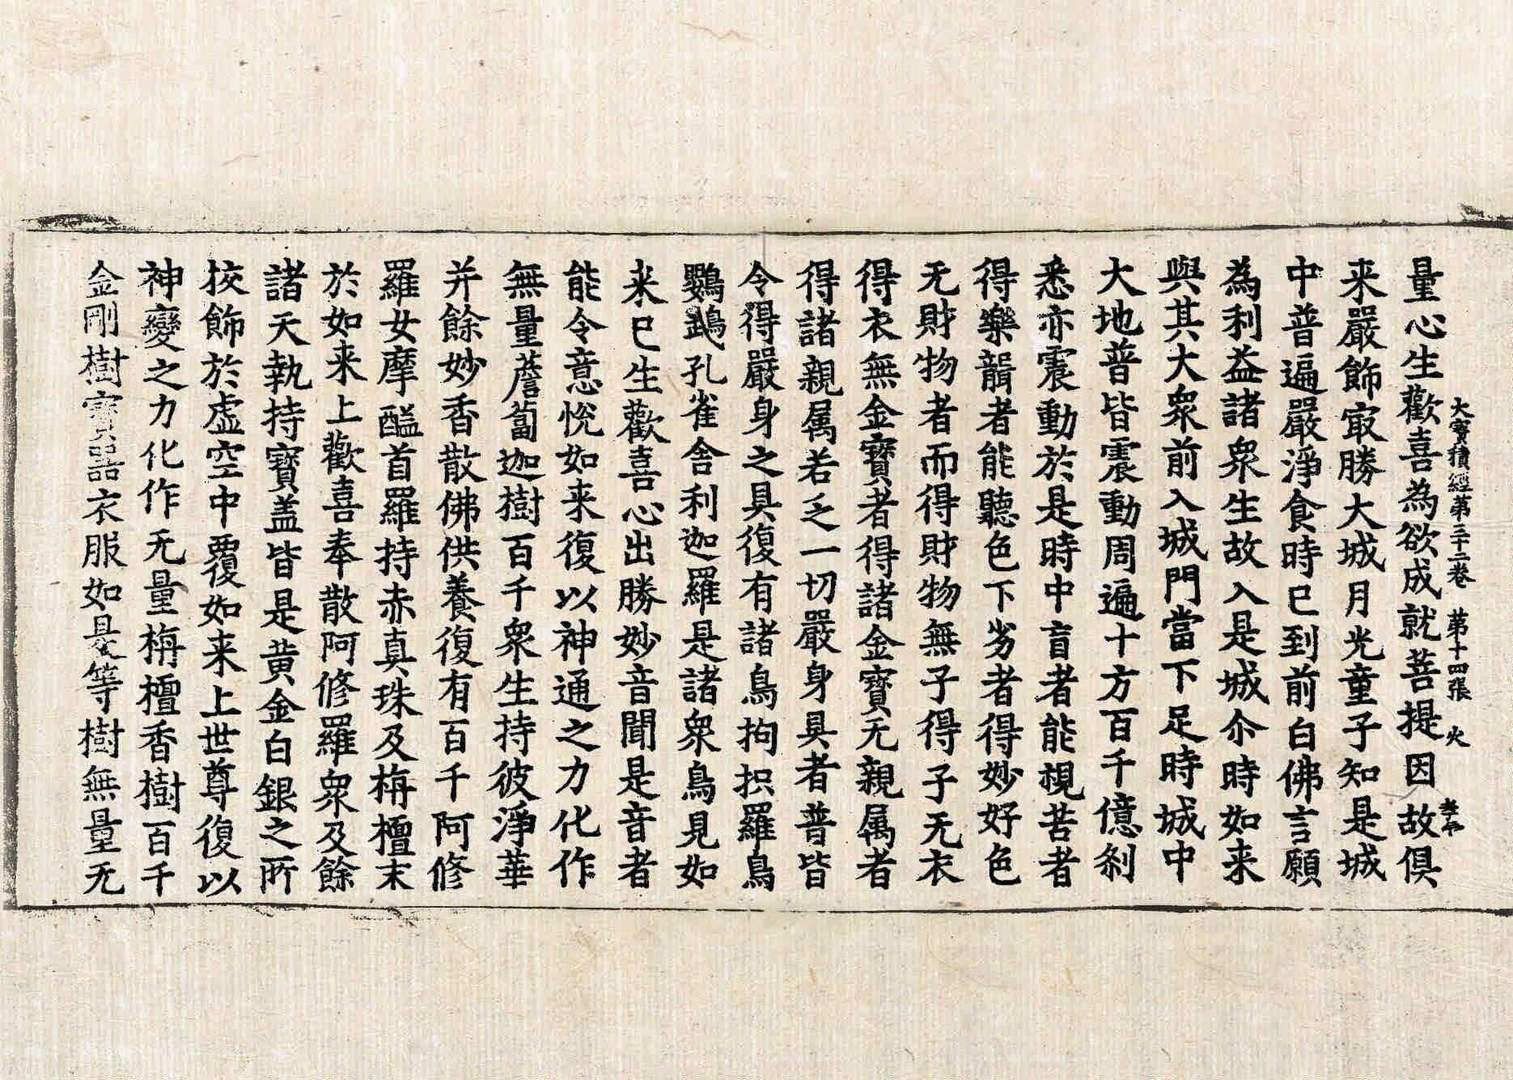 大寶積經第三十二卷　第十四張　火
量心生歡喜為欲成就菩提因故俱
来嚴飾㝡勝大城月光童子知是城
中普遍嚴淨食時已到前白佛言願
為利益諸衆生故入是城尒時如来
與其大衆前入城門當下足時城中
大地普皆震動周遍十方百千億刹
悉亦震動於是時中盲者能視苦者
得樂聾者能聽色下劣者得妙好色
无財物者而得財物無子得子无衣
得衣無金寶者得諸金寶无親属者
得諸親属若乏一切嚴身具者普皆
令得嚴身之具復有諸鳥拘抧羅鳥
鸚鵡孔雀舍利迦羅是諸衆鳥見如
来已生歡喜心出勝妙音聞是音者
能令意恱如来復以神通之力化作
無量薝蔔迦樹百千衆生持彼淨華
并餘妙香散佛供養復有百千阿修
羅女摩醯首羅持赤真珠及栴檀末
於如来上歡喜奉散阿修羅衆及餘
諸天執持寶盖皆是黄金白銀之所
挍飾於虚空中覆如来上世尊復以
神變之力化作无量栴檀香樹百千
金剛樹寶器衣服如是等樹無量无